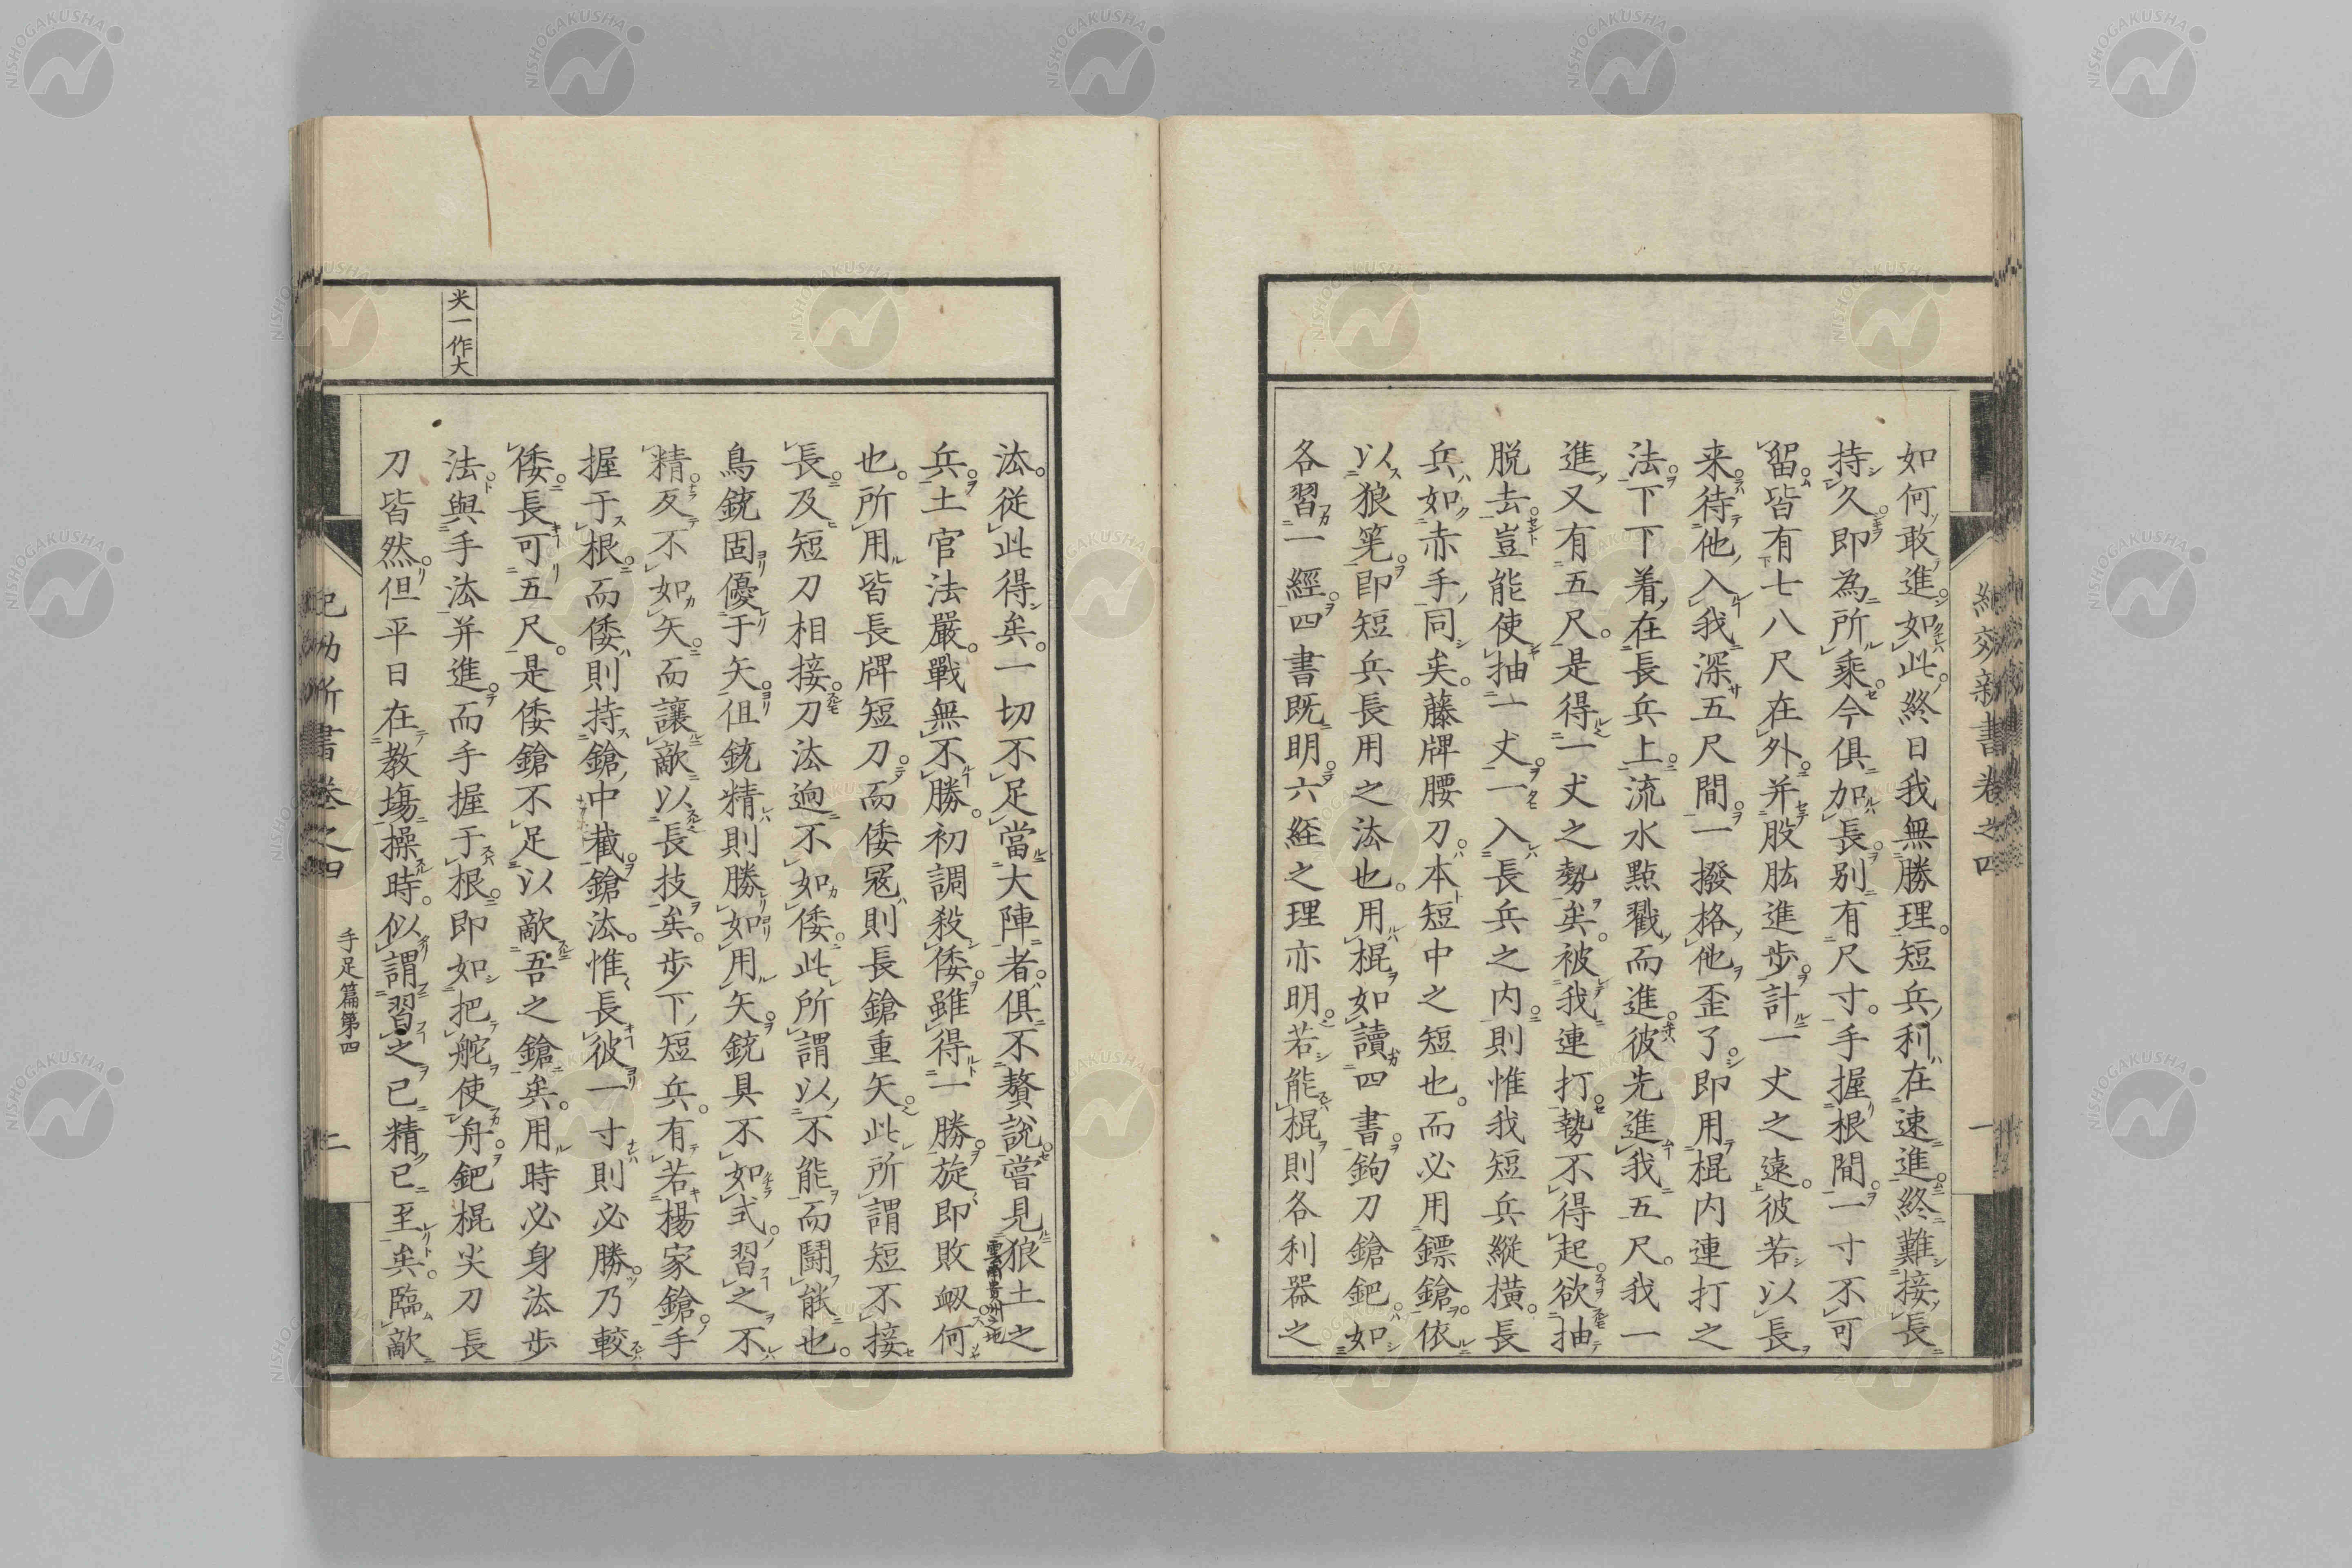 如何敢進如此終日我無勝理短兵利在速進終難接長
持久即為所乘今俱加長別有尺寸手握根間一寸不可
留皆有七八尺在外并股肱進步計一丈之遠彼若以長
来待他入我深五尺間一撥格他歪了即用棍内連打之
法下下着在長兵上流水點戳而進彼先進我五尺我一
進又有五尺是得一丈之勢矣被我連打勢不得起欲抽
脱去豈能使抽一丈一入長兵之内則惟我短兵縱橫長
兵如赤手同矣藤牌腰刀本短中之短也而必用鏢鎗依
以狼筅即短兵長用之法也用棍如讀四書鉤刀鎗鈀如
各習一經四書既明六経之理亦明若能棍則各利器之
紀効新書卷之四
一
法從此得矣一切不足當大陣者俱不贅說嘗見狼土之
雲南貴州之地
兵土官法嚴戰無不勝初調殺倭雖得一勝旋即敗衂何
也所用皆長牌短刀而倭冦則長鎗重矢此所謂短不接
長及短刀相接刀法迥不如倭此所謂以不能而鬪能也
鳥銃固優于矢但銃精則勝如用矢銃具不如式習之不
精反不如矢而讓敵以長技矣步下短兵有若楊家鎗手
握于根而倭則持鎗中截鎗法惟長彼一寸則必勝乃較
倭長可五尺是倭鎗不足以敵吾之鎗矣用時必身法步
法與手法并進而手握于根即如把舵使舟鈀棍尖刀長
刀皆然但平日在教場操時似謂習之已精已至矣臨敵
尖一作大
紀効新書卷之四
手足篇第四
二
NISHOGAKUSHA